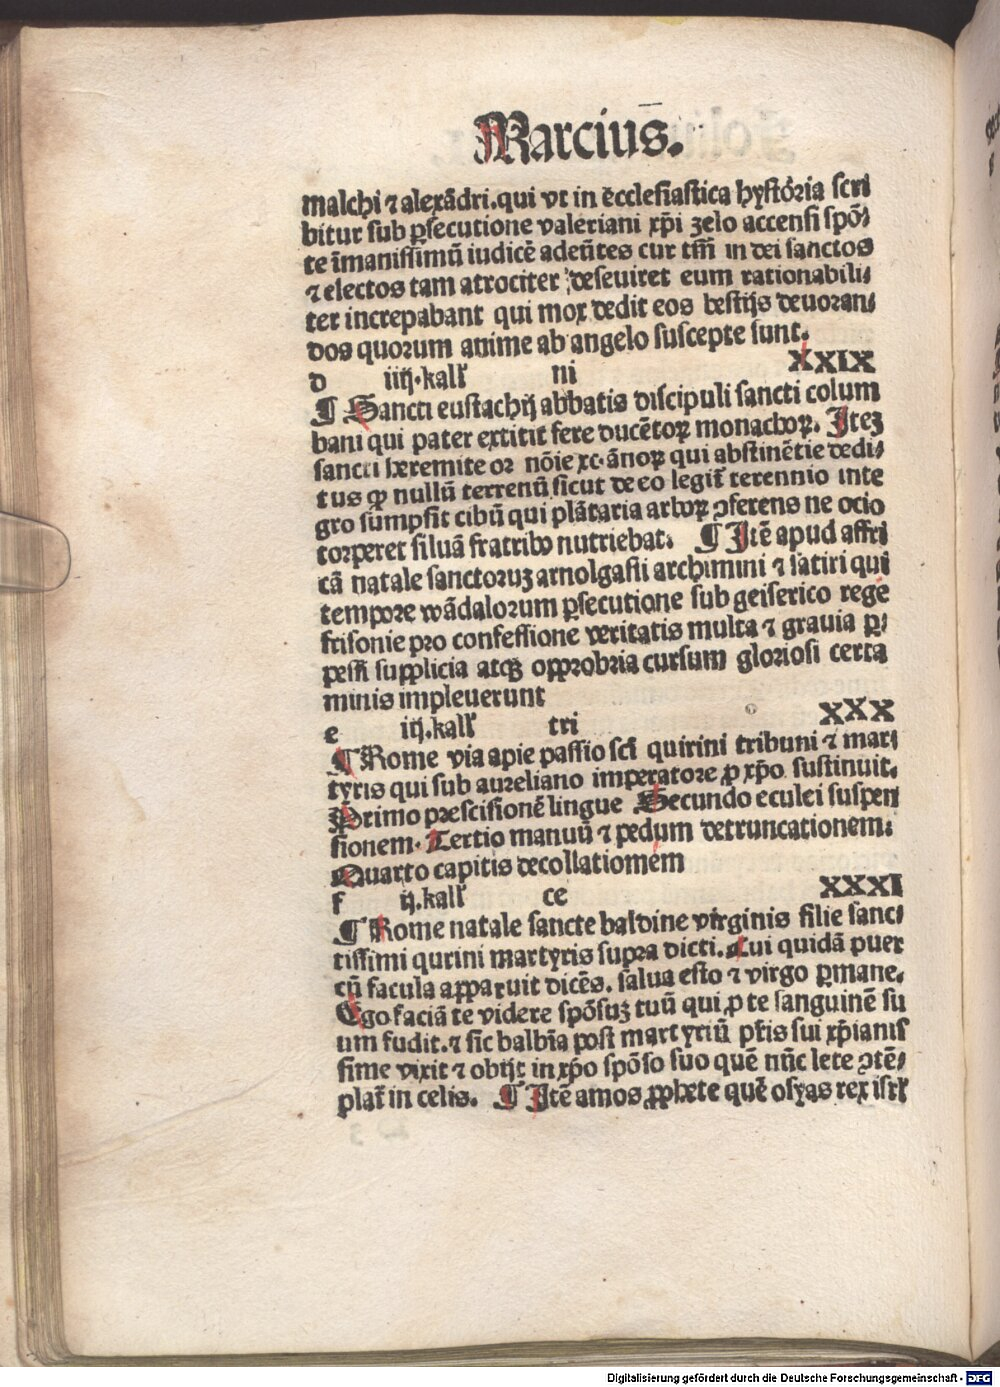 Marcius.
malchi ⁊ alexādri.qui vt in ecclesiastica hystoria scri
bitur sub ꝑsecutione valeriani xp̄i zelo accensi spō⸗
te īmanissimū iudicē adeūtes cur tm̄ in dei sanctos
⁊ electos tam atrociter deseuiret eum rationabili⸗
ter increpabant qui mox dedit eos bestijs deuoran⸗
dos quorum anime ab angelo suscepte sunt.
d iiij.kal' ni XXIX
¶ Sancti eustachij abbatis discipuli sancti colum
bani qui pater extitit fere ducētoꝝ monachoꝝ. Itez
sancti heremite or nōie xc.ānoꝝ qui abstinētie dedi⸗
tus ꝙ nullū terrenū sicut de eo legit̄ terennio inte
gro sumpsit cibū qui plātaria arboꝝ ꝯferens ne ocio
torperet siluā fratribꝰ nutriebat. ¶ Itē apud affri
cā natale sanctoruz arnolgasti archimini ⁊ satiri qui
tempore wādalorum ꝑsecutione sub geiserico rege
frisonie pro confessione veritatis multa ⁊ grauia ꝑ⸗
pessi supplicia atqꝫ opprobria cursum gloriosi certa
minis impleuerunt
e iij.kal' tri XXX
¶ Rome via apie passio sci̅ quirini tribuni ⁊ mar⸗
tyris qui sub aureliano imperatore ꝓ xp̄o sustinuit.
Primo prescisionē lingue Secundo eculei suspen
sionem. Tertio manuū ⁊ pedum detruncationem.
Quarto capitis decollatiomem
f ij.kal' ce XXXI
¶ Rome natale sancte baldine virginis filie sanc⸗
tissimi qurini martyris supra dicti. Cui quidā puer
cū facula apparuit dicēs. salua esto ⁊ virgo ꝑmane.
Ego faciā te videre spōsuz tuū qui ꝓ te sanguinē su
um fudit.⁊ sic balbīa post martyriū pt̄is sui xp̄ianis
sime vixit ⁊ obijt in xp̄o spōso suo quē nūc lete ꝯtē⸗
plat̄ in celis. ¶ Itē amos ꝓphete quē osyas rex isrl'
Digitalisierung gefördert durch die Deutsche Forschungsgemeinschaft - DFG